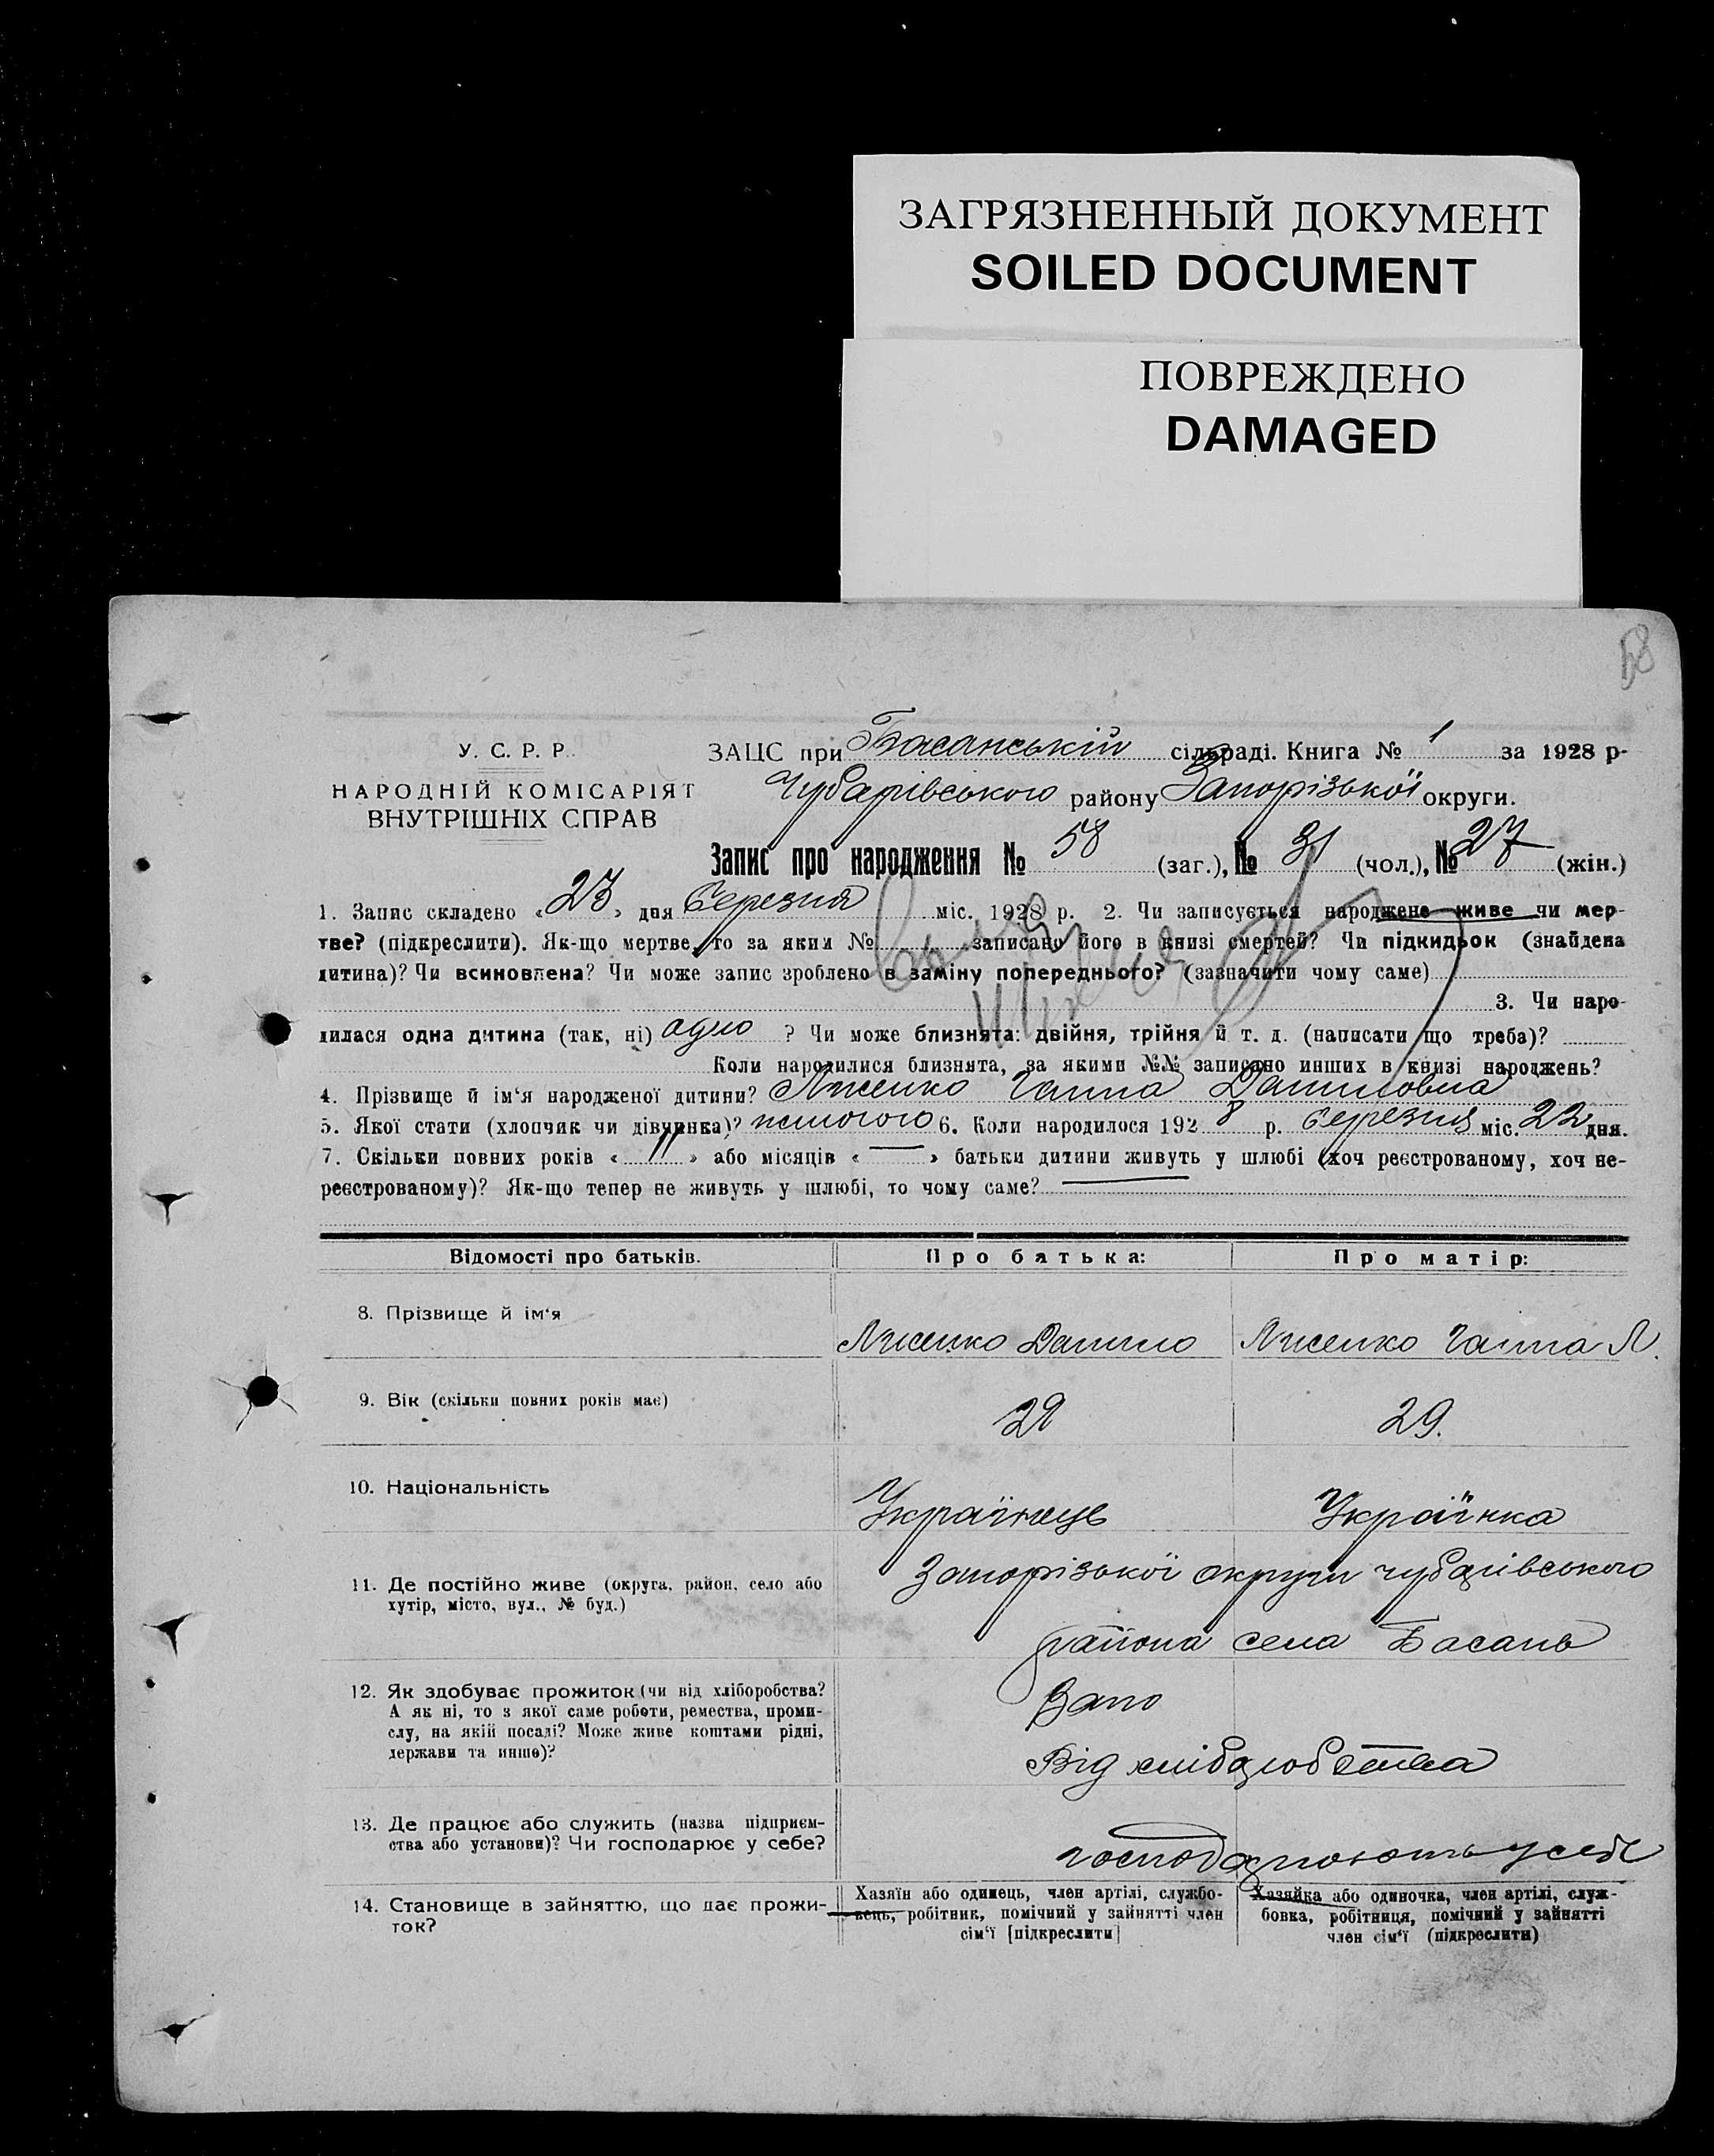 ЗАГРЯЗНЕННЫЙ ДОКУМЕНТ
SOILED DOCUMENT
ПОВРЕЖДЕНО
DAMAGED
58
У. С. Р. Р.
НАРОДНІЙ КОМІСАРІЯТ
ВНУТРІШНІХ СПРАВ
ЗАЦС при Басанській сільраді. Книга № 1 за 1928 р.
Чубарівського району Запорізької округи.
Запис про народження № 58 (заг.), № 31 (чол.), № 27 (жін.)
1. Запис складено «23» дня березня міс. 1928 р. 2. Чи записується народжене живе чи мер-
тве? (підкреслити). Як-що мертве, то за яким № записано його в книзі смертей? Чи підкидьок (знайдена
дитина)? Чи всиновлена? Чи може запис зроблено в заміну попереднього? (зазначити чому саме)
3. Чи наро-
дилася одна дитина (так, ні) одно ? Чи може близнята: двійня, трійня й т. д. (написати що треба)?
Коли народилися близнята, за якими №№ записано инших в книзі народжень?
4. Прізвище й ім'я народженої дитини? Лисенко Ганна Даниловна
5. Якої стати (хлопчик чи дівчинка)? жіночого 6. Коли народилося 1928 р. березня міс. 22 дня.
7. Скільки повних років « 11 » або місяців « — » батьки дитини живуть у шлюбі (хоч реєстрованому, хоч не-
реєстрованому)? Як-що тепер не живуть у шлюбі, то чому саме? —
Відомості про батьків. Про батька: Про матір:
8. Прізвище й ім'я
Лисенко Данило Лисенко Ганна Л.
9. Вік (скільки повних років має)
29 29.
10. Національність
Українець Українка
11. Де постійно живе (округа, район, село або
хутір, місто, вул., № буд.)
Запорізької округи чубарівського
района села Басань
12. Як здобуває прожиток (чи від хліборобства?
А як ні, то з якої саме роботи, ремества, проми-
слу, на якій посаді? Може живе коштами рідні,
держави та инше)?
Від хліборобства
13. Де працює або служить (назва підприєм-
ства або установи)? Чи господарює у себе?
господарюють у себе
14. Становище в зайняттю, що дає прожи-
ток?
Хазяїн або одинець, член артілі, службо-
вець, робітник, помічний у зайнятті член
сім'ї [підкреслити]
Хазяйка або одиночка, член артілі, служ-
бовка, робітниця, помічний у зайнятті
член сім'ї (підкреслити)